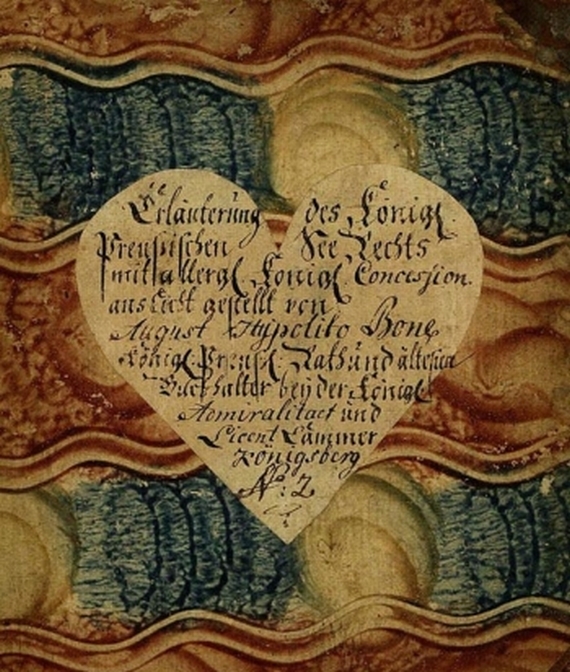 Erläuterung des Königl.
Preußischen See Rechts
mit allergl. Königl. Concession.
ans Licht gestellt von
August Hypolito Bone
Königl. Preuß. Rath und ältesten
Buchhalter bey der Königl.
Admiralitaet und
Licent Cammer
Königsberg
No: 2